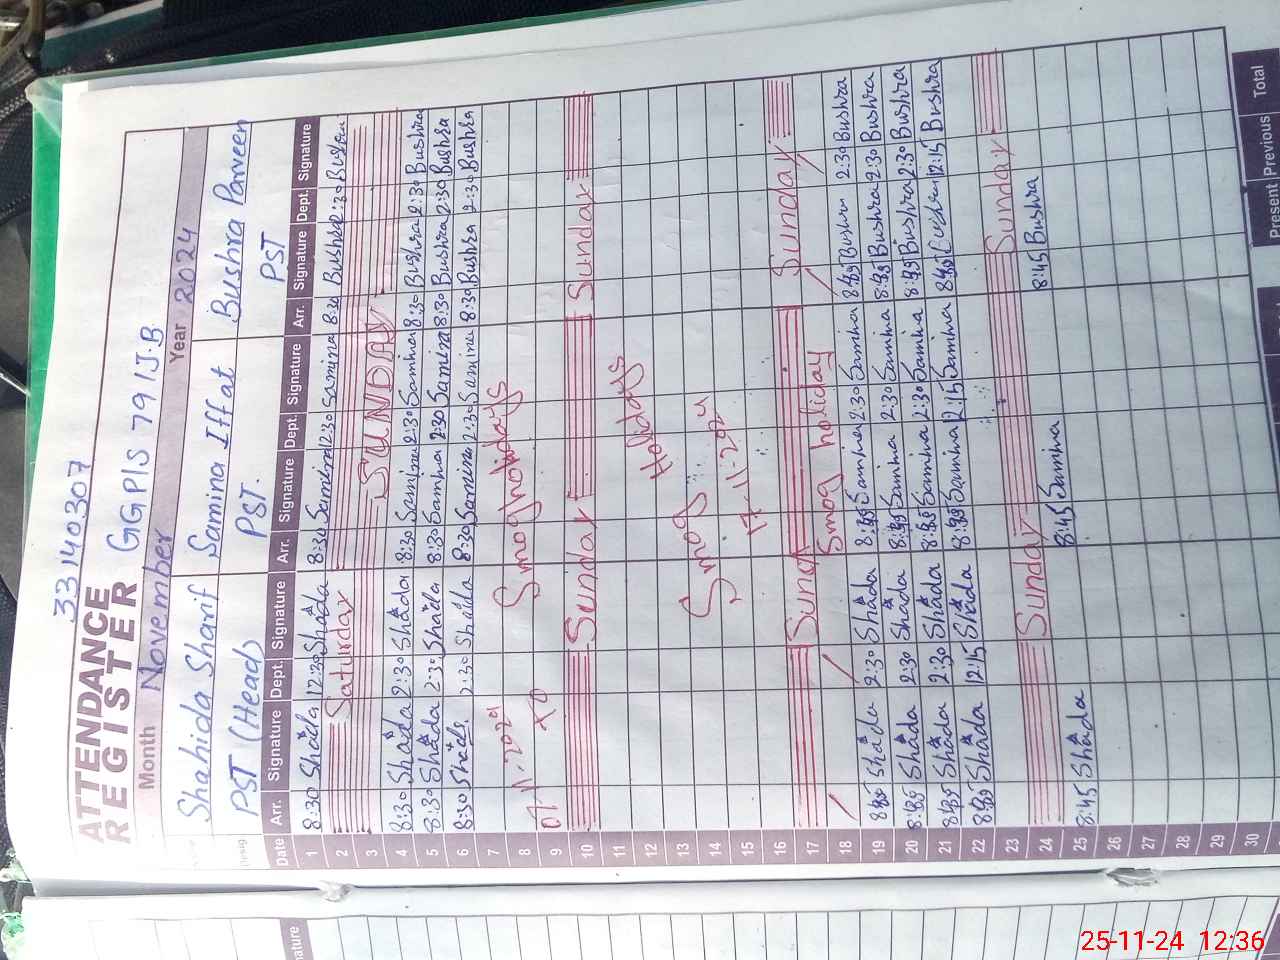 33140307
ATTENDANCE
REGISTER GGPIS 791J.B
Month November Year 2024
Shahida Sharif Samina Iffat Bushra Parveen
Desig PST (Head) PST. PST
Date Arr. Signature Dept. Signature Arr. Signature Dept. Signature Arr. Signature Dept. Signature
1 8:30 Shaida 12:30 Shaida 8:30 Samina 12:30 Samina 8:30 Bushra 12:30 Bushra
2 Saturday
3 SUNDAY
4 8:30 Shaida 2:30 Shaida 8:30 Samina 2:30 Samina 8:30 Bushra 2:30 Bushra
5 8:30 Shaida 2:30 Shaida 8:30 Samina 2:30 Samina 8:30 Bushra 2:30 Bushra
6 8:30 Shaida 2:30 Shaida 8:30 Samina 2:30 Samina 8:30 Bushra 2:30 Bushra
7 07-11-2024 Smog holidays
8 TO
9
10 Sunday Sunday Sunday
11 Holidays
12
13 Smog
14 17-11-2024
15
16
17 Sunday Sunday
18 Smog holiday
19 2:30 Shaida Samina 2:30 Samina Bushra 2:30 Bushra
20 Shaida 2:30 Shaida Samina 2:30 Samina Bushra 2:30 Bushra
21 Shaida 2:30 Shaida Samina 2:30 Samina Bushra 2:30 Bushra
22 Shaida 12:15 Shaida Samina 12:15 Samina 12:15 Bushra
23
24 Sunday Sunday Sunday
25 8:45 Shaida 8:45 Samina 8:45 Bushra
26
27
28
29
30
Present Previous Total
25-11-24 12:36